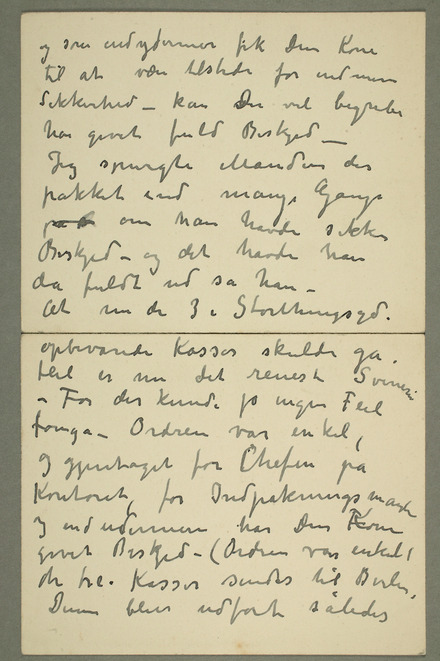 og som endydermer fik Din Kone
til at være tilstede for endmere
Sikkerhed – kan Du vel begribe
han givet fuld Beskjed –
Jeg spurgte Manden der
pakket ind mange Gange
om han havde sikker
Beskjed – og det havde han
da fuldt ud sa han –
At nu de 3 i Storthingsgd.
opbevarede Kasser skulde ga,
feil er nu det reneste Svineri
– For der kunde jo ingen Feil
foregå – Ordren var enkel,
og gjentaget for Chefen på
Kontoret, for Indpakningsmanden
og endydermere har Din Kone
givet Beskjed – (Ordren var enkel!
de tre Kasser sendes til Berlin,
Denne blev udført således